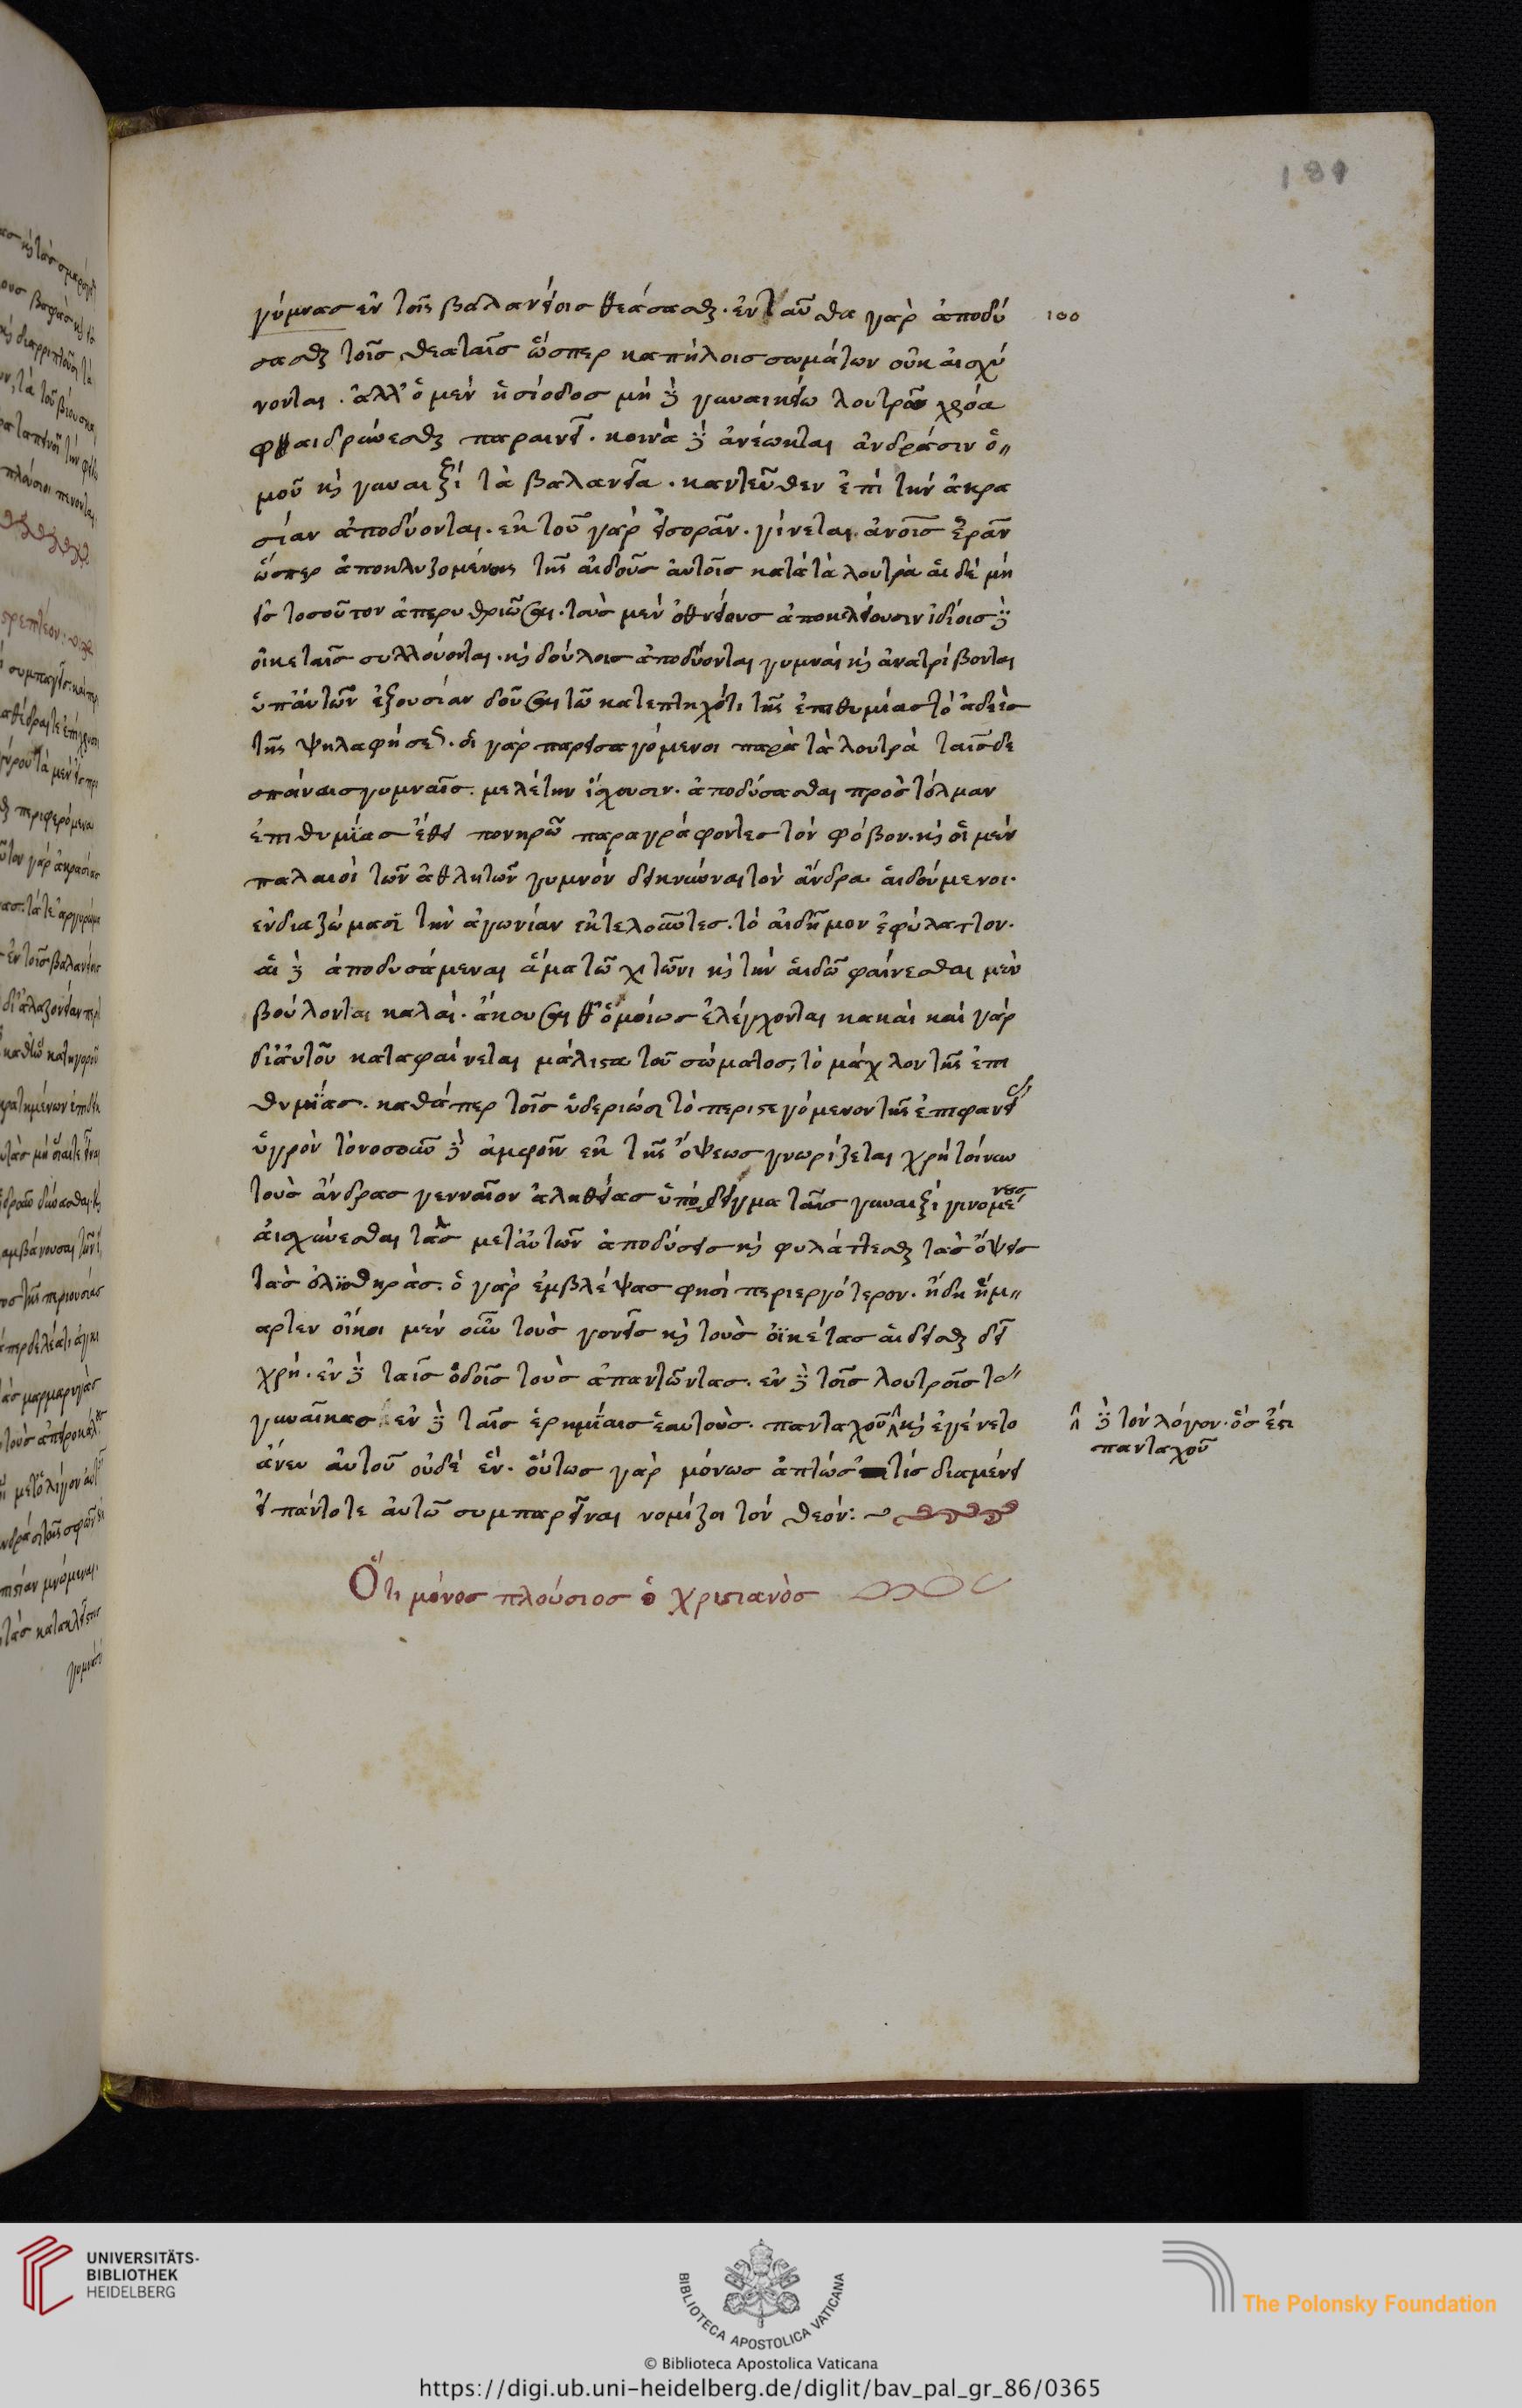 181
γύμνας ἐν τοῖς βαλανείοις θεάσασθαι· ἐνταῦθα γὰρ ἀποδύ
100
σασθαι τοῖς θεαταῖς ὥσπερ καπήλοις σωμάτων οὐκ αἰσχύ
νονται. ἀλλ' ὁ μὲν ἡσίοδος μὴ δὲ γυναικείω λουτρῶ χρόα
φαιδρύνεσθαι παραινεῖ. κοινὰ δὲ ἀνέωκται ἀνδράσιν ὁ〃
μοῦ καὶ γυναιξί τὰ βαλανεῖα. καντεῦθεν ἐπὶ τὴν ἀκρα
σίαν ἀποδύονται. ἐκ τοῦ γὰρ εἰσορᾶν. γίνεται ἀνοις ἐρᾶν
ὥσπερ ἀποκλυζομένης τῆς αἰδοῦς αὐτοῖς κατὰ τὰ λουτρὰ αἱ δὲ μὴ
εἰς τοσοῦτον ἀπερυθριῶσαι. τοὺς μὲν ὀθνείους ἀποκλείουσιν ἰδίοις δὲ
οἰκεταῖς συλλούονται. καὶ δούλοις ἀποδύονται γυμναὶ καὶ ἀνατρίβονται
ὑπ' αὐτῶν ἐξουσίαν δοῦσαι τῶ κατεπτηχότι τῆς ἐπιθυμίας τὸ ἀδεὲς
τῆς ψηλαφήσεως. οἱ γὰρ παρεισαγόμενοι παρὰ τὰ λουτρὰ ταῖς δε
σποίναις γυμναῖς. μελέτην ἴσχουσιν. ἀποδύσασθαι πρὸς τόλμαν
ἐπιθυμίας ἔθει πονηρῶ παραγράφοντες τὸν φόβον. καὶ οἱ μὲν
παλαιοὶ τῶν ἀθλητῶν γυμνὸν δεικνύναι τὸν ἄνδρα. αἰδούμενοι.
ἐν διαζώμασι τὴν ἀγωνίαν ἐκτελοῦντες. τὸ αἰδῆμον ἐφύλαττον.
αἱ δὲ ἀποδυσάμεναι ἅμα τῶ χιτῶνι καὶ τὴν αἰδῶ φαίνεσθαι μὲν
βούλονται καλαί. ἄκουσαι δὲ ὁμοίως ἐλέγχονται κακαὶ καὶ γὰρ
δι' αὐτοῦ καταφαίνεται μάλιστα τοῦ σώματος, τὸ μάχλον τῆς ἐπι
θυμίας. καθάπερ τοῖς ὑδεριῶσι τὸ περιστεγόμενον τῆς ἐπιφανείας
ὑγρὸν τὸ νοσοῦν δὲ ἀμφοῖν ἐκ τῆς ὄψεως γνωρίζεται χρὴ τοίνυν
τοὺς ἄνδρας γενναῖον ἀληθείας ὑπόδειγμα ταῖς γυναιξὶ γινομένους
αἰσχύνεσθαι τὰς μετ' αὐτῶν ἀποδύσεις καὶ φυλάττεσθαι τὰς ὄψεις
τὰς ὀλισθηράς. ὁ γὰρ ἐμβλέψας φησὶ περιεργότερον. ἤδη ἥμ〃
αρτεν οἴκοι μὲν οὖν τοὺς γονεῖς καὶ τοὺς οἰκέτας αἰδεῖσθαι δεῖ
χρὴ. ἐν δὲ ταῖς ὁδοῖς τοὺς ἀπαντῶντας. ἐν δὲ τοῖς λουτροῖς τὰς
γυναῖκας ἐν δὲ ταῖς ἐρημίαις ἑαυτοὺς. πανταχοῦ καὶ ἐγένετο
δὲ τὸν λόγον. ὅς ἐστι
πανταχοῦ
ἄνευ αὐτοῦ οὐδὲ ἕν. οὕτως γὰρ μόνως ἀπτώς τίς διαμένει
εἰ πάντοτε αὐτῶ συμπαρεῖναι νομίζοι τὸν θεόν:
Ὅτι μόνος πλούσιος ὁ χριστιανὸς
UNIVERSITÄTS-
BIBLIOTHEK
HEIDELBERG
BIBLIOTECA APOSTOLICA VATICANA
The Polonsky Foundation
© Biblioteca Apostolica Vaticana
https://digi.ub.uni-heidelberg.de/diglit/bav_pal_gr_86/0365